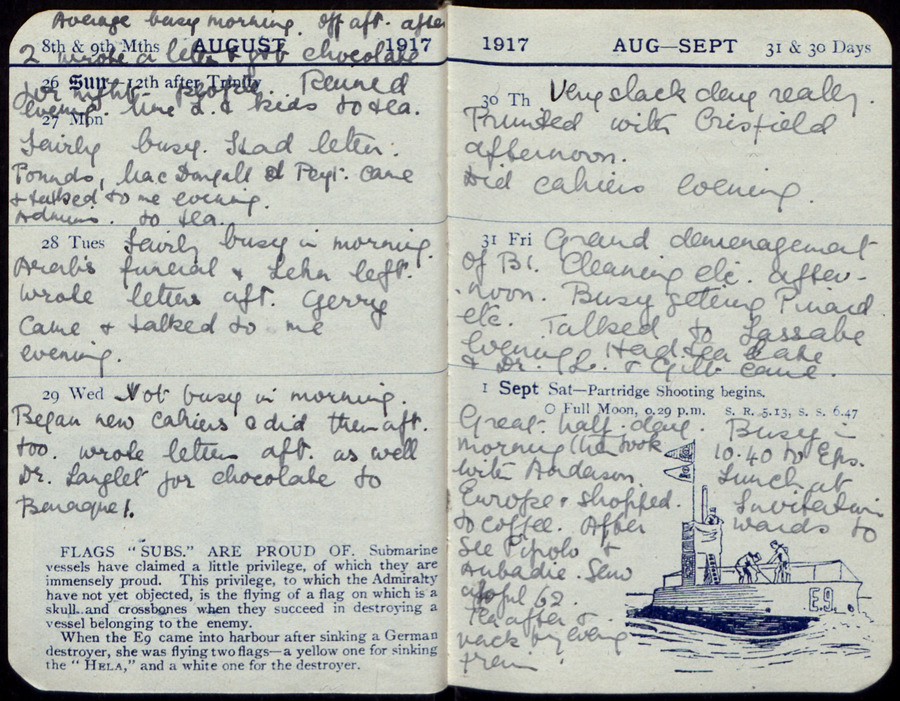 Average busy morning. Off aft. after
8th & 9th Mths AUGUST 1917
2 wrote a letter & got chocolate
26 Sun—12th after Trinity
for night people. Penned
evening. Mme L. & kids to tea.
27 Mon
Fairly busy. Had letter.
Pounds, MacDougall & Peyt. came
& talked to me evening.
to tea.
28 Tues Fairly busy in morning.
Arab's funeral & Lehn left.
Wrote letters aft. Gerry
came & talked to me
evening.
29 Wed Not busy in morning.
Began new cahiers & did them aft.
too. Wrote letters aft. as well
Dr. Langlet for chocolate to
FLAGS "SUBS." ARE PROUD OF. Submarine
vessels have claimed a little privilege, of which they are
immensely proud. This privilege, to which the Admiralty
have not yet objected, is the flying of a flag on which is a
skull and crossbones when they succeed in destroying a
vessel belonging to the enemy.
When the E9 came into harbour after sinking a German
destroyer, she was flying two flags—a yellow one for sinking
the "HELA," and a white one for the destroyer.
1917 AUG—SEPT 31 & 30 Days
30 Th Very slack day really.
Printed with Crisfield
afternoon.
Did cahiers evening.
31 Fri Grand demenagement
of B1. Cleaning etc. after-
noon. Busy getting Pinard
etc. Talked to Lassabe
evening. Had tea cake
& Dr. L. & Gilb came.
1 Sept Sat—Partridge Shooting begins.
○ Full Moon, 0.29 p.m. S. R. 5.13, S. S. 6.47
Great half-day. Busy in
morning then took 10.40 to Eps.
with Anderson. Lunch at
Europe & shopped. Invitation
to coffee. After wards to
see Pipolo &
Aubadie. Saw
62.
Tea after &
back by evening
train.
E9.